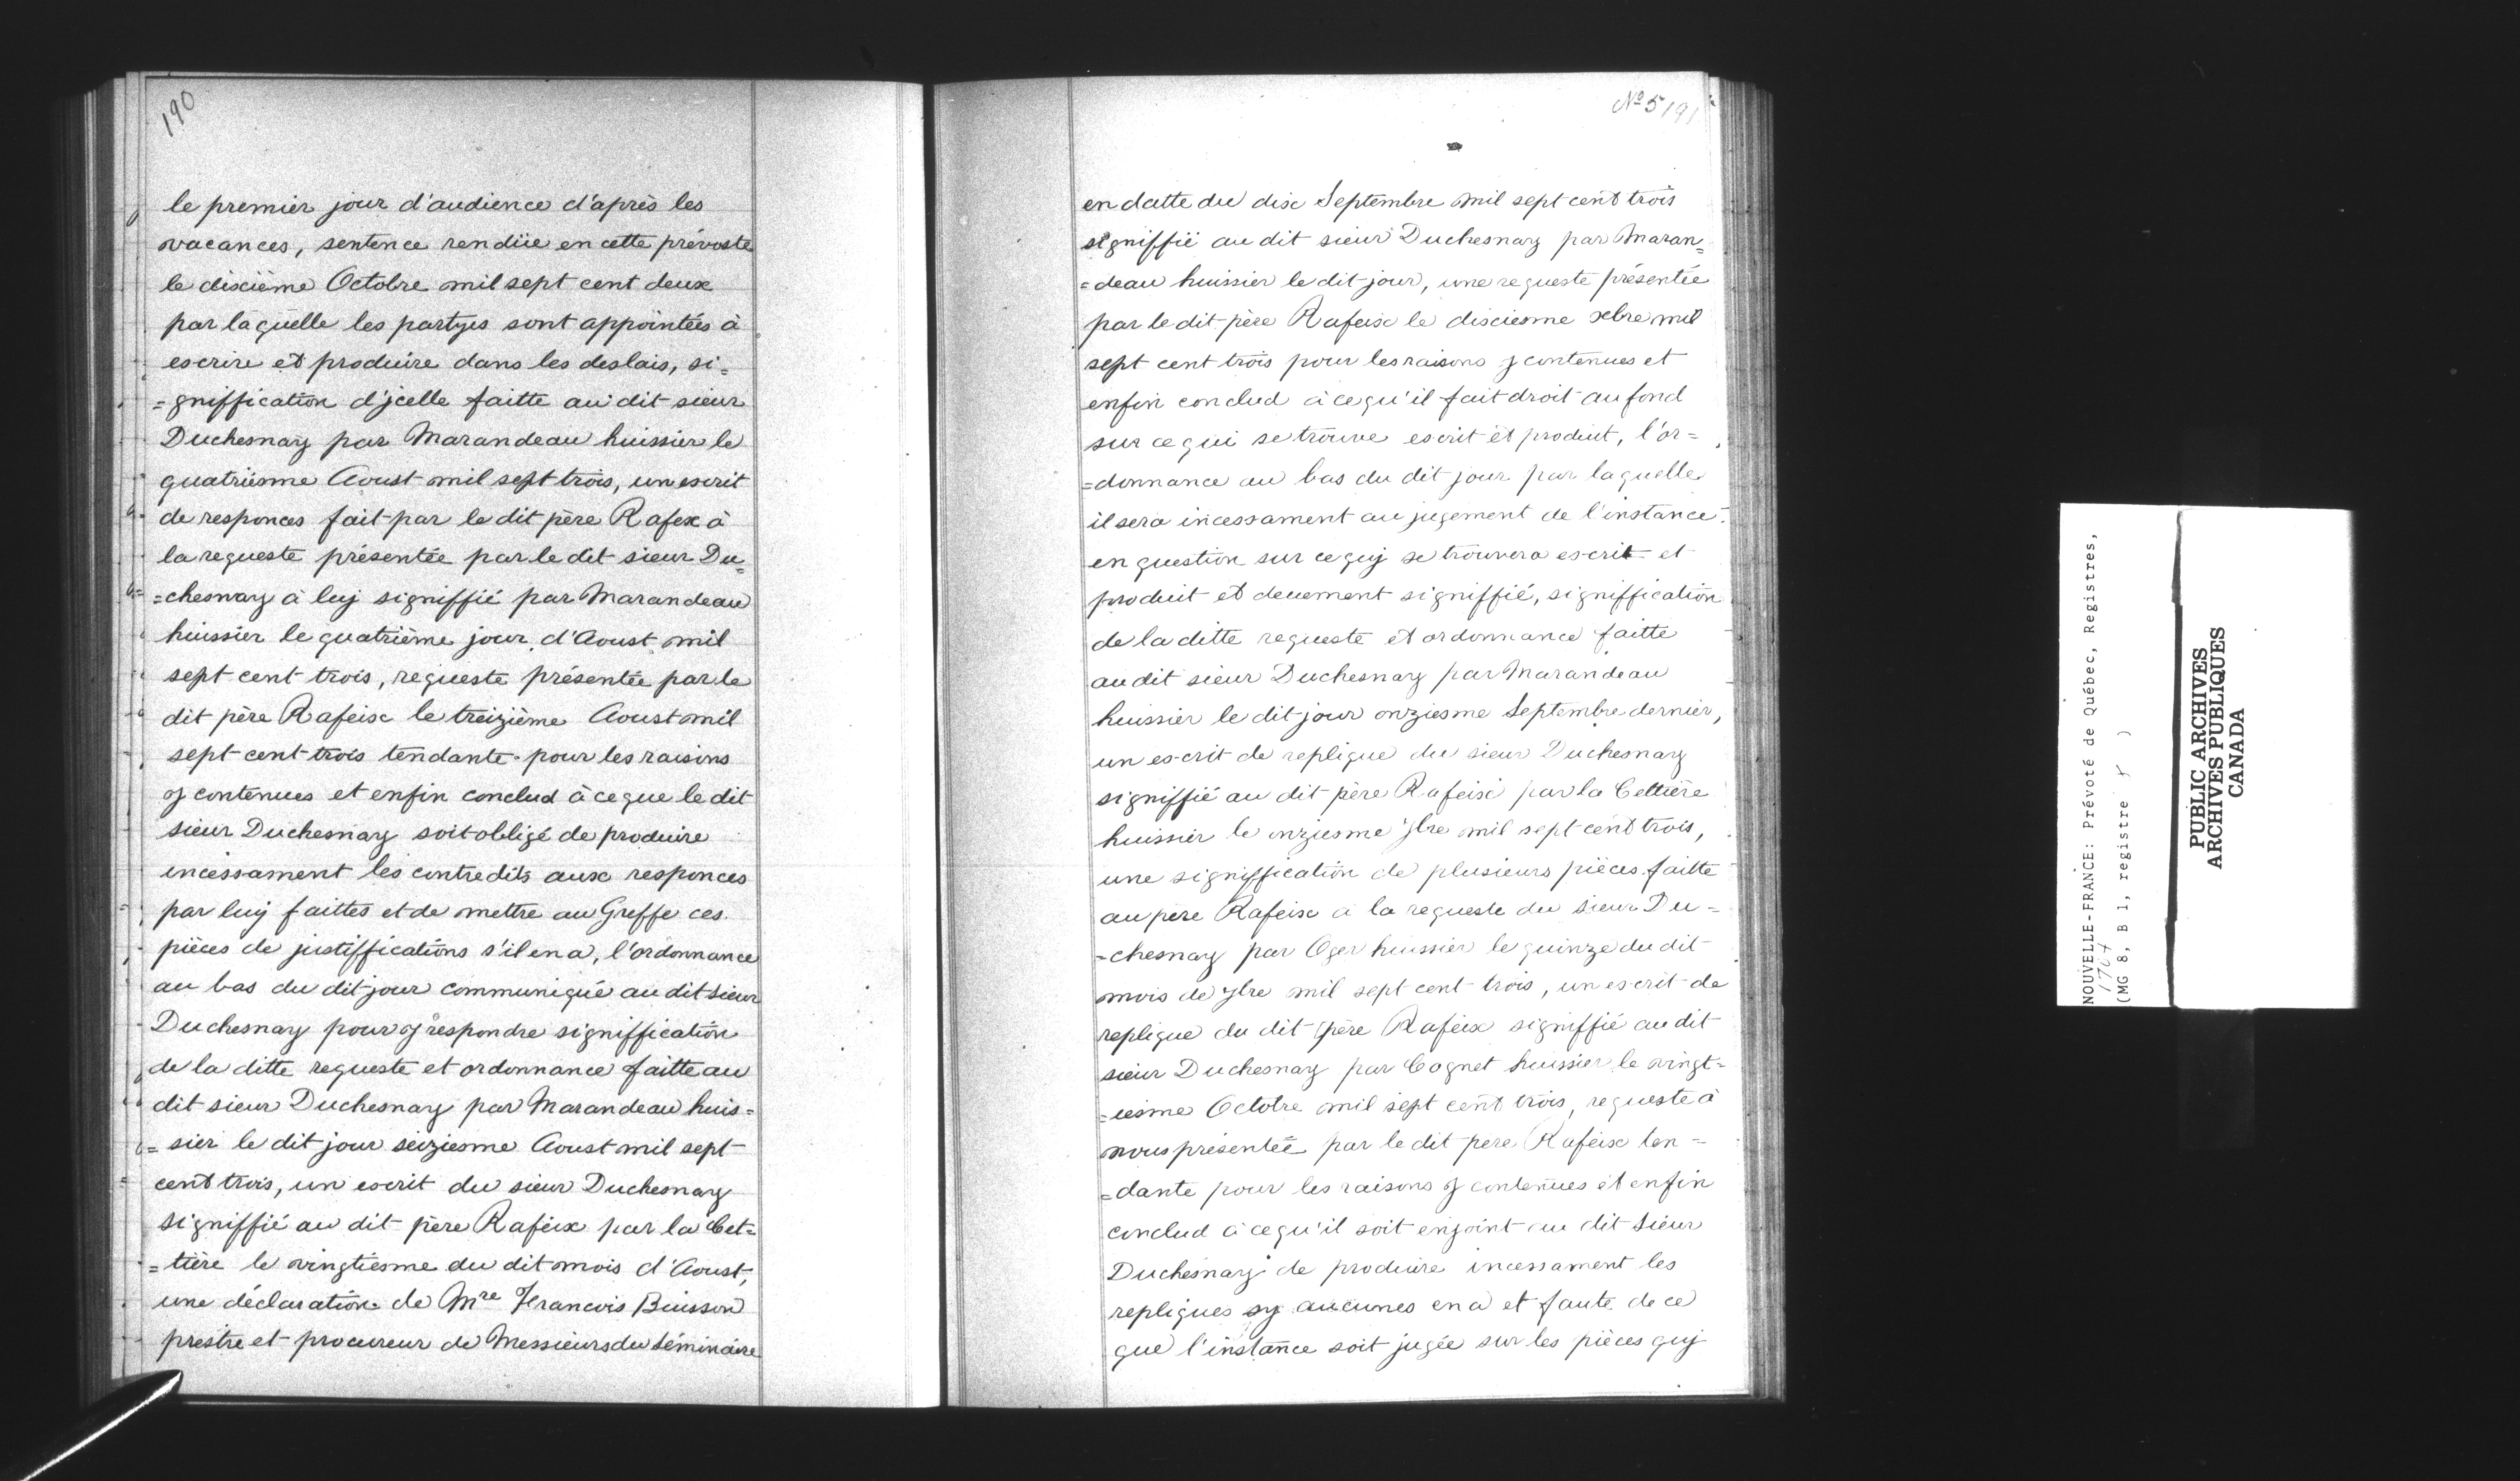 190
le premier jour d'audience d'après les
vacances, sentence rendüe en cette prévosté
le dixième Octobre mil sept cent deux
par laquelle les partyes sont appointées à
escrire et produire dans les deslais, si=
=gniffication d'jcelle faitte au dit sieur
Duchesnay par Marandeau huissier le
quatriesme Aoust mil sept trois, un escrit
de responces fait par le dit père Rafex à
la requeste présentée par le dit sieur Du=
=chesnay à luy signiffié par Marandeau
huissier le quatrième jour d'Aoust mil
sept cent trois, requeste présentée par le
dit père Rafeix le treizième Aoust mil
sept cent trois tendante pour les raisons
y contenues et enfin conclud à ce que le dit
sieur Duchesnay soit obligé de produire
incessament les contredits aux responces
par luy faittes et de mettre au Greffe ces
pièces de justiffications s'il en a, l'ordonnance
au bas du dit jour communiqué au dit sieur
Duchesnay pour y respondre signiffication
de la ditte requeste et ordonnance faitte au
dit sieur Duchesnay par Marandeau huis=
=sier le dit jour seiziesme Aoust mil sept
cent trois, un escrit du sieur Duchesnay
signiffié au dit père Rafeix par la Cet=
=tière le vingtiesme du dit mois d'Aoust,
une déclaration de Mre Francois Buisson
prestre et procureur de Messieurs du séminaire
No 5 191
en datte du dix Septembre mil sept cent trois
signiffié au dit sieur Duchesnay par Maran=
=deau huissier le dit jour, une requeste présentée
par le dit père Rafeix le dixiesme xbre mil
sept cent trois pour les raisons y contenues et
enfin conclud à ce qu'il fait droit au fond
sur ce qui se trouve escrit et produit, l'or=
=donnance au bas du dit jour par laquelle
il sera incessament au jugement de l'instance
en question sur ce quj se trouvera escrit et
produit et deuement signiffié, signiffication
de la ditte requeste et ordonnance faitte
au dit sieur Duchesnay par Marandeau
huissier le dit jour onziesme Septembre dernier,
un escrit de replique du sieur Duchesnay
signiffié au dit père Rafeix par la Cettière
huissier le onziesme 7bre mil sept cent trois,
une signiffication de plusieurs pièces faitte
au père Rafeix a la requeste du sieur Du=
=chesnay par Oger huissier le quinze du dit
mois de 7bre mil sept cent trois, un escrit de
replique du dit père Rafeix signiffié au dit
sieur Duchesnay par Cognet huissier le vingt=
=iesme Octobre mil sept cent trois, requeste à
nous présentée par le dit pere Rafeix ten=
=dante pour les raisons y contenues et enfin
conclud à ce qu'il soit enjoint au dit sieur
Duchesnay de produire incessament les
repliques sy aucunes en a et faute de ce
que l'instance soit jugée sur les pièces quj
NOUVELLE-FRANCE: Prévoté de Québec, Registres,
1704
(MG 8, B 1, registre )
PUBLIC ARCHIVES
ARCHIVES PUBLIQUES
CANADA